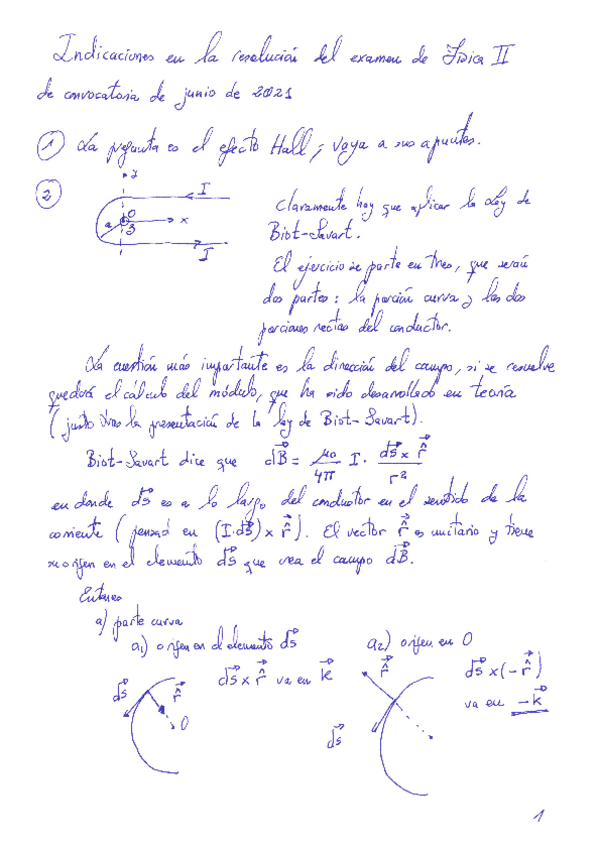 Indicaciones en la resolución del examen de Física II
de convocatoria de junio de 2021
① La pregunta es el efecto Hall; vaya a sus apuntes.
②
y
I
a
O
z
x
I
Claramente hay que aplicar la Ley de
Biot-Savart.
El ejercicio se parte en tres, que serán
dos partes: la porción curva y las dos
porciones rectas del conductor.
La cuestión más importante es la dirección del campo, si se resuelve
quedará el cálculo del módulo, que ha sido desarrollado en teoría
(justo tras la presentación de la ley de Biot-Savart).
Biot-Savart dice que dB⃗ = μ₀/4π I · ds⃗ × r̂⃗ / r²
en donde ds⃗ es a lo largo del conductor en el sentido de la
corriente (pensad en (I·ds⃗) × r̂⃗). El vector r̂⃗ es unitario y tiene
su origen en el elemento ds⃗ que crea el campo dB⃗.
Entonces
a) parte curva
a₁) origen en el elemento ds⃗
ds⃗ × r̂⃗ va en k⃗
ds⃗
r̂⃗
O
a₂) origen en O
r̂⃗
ds⃗ × (-r̂⃗)
va en -k⃗
ds⃗
1